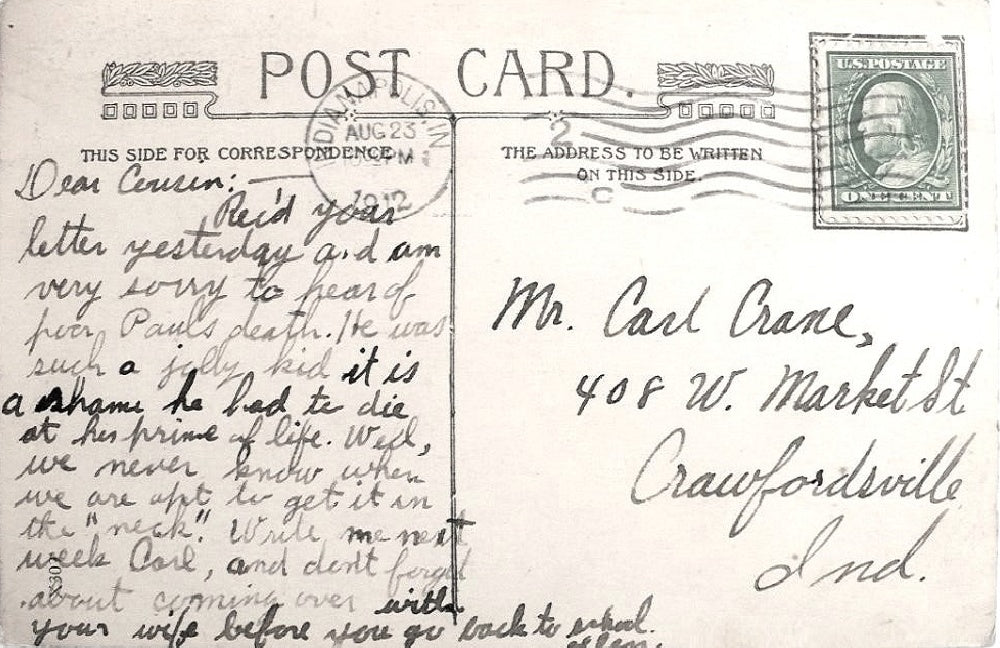 POST CARD.
INDIANAPOLIS, IN
AUG 23
PM
1912
2
C
U.S. POSTAGE
ONE CENT
THIS SIDE FOR CORRESPONDENCE
THE ADDRESS TO BE WRITTEN
ON THIS SIDE.
Dear Cousin:—
Rec'd your
letter yesterday and am
very sorry to hear of
poor Paul's death. He was
such a jolly kid it is
a shame he had to die
at his prime of life. Well,
we never know when
we are apt to get it in
the "neck". Write me next
week Carl, and don't forget
about coming over with
your wife before you go back to school.
Mr. Carl Crane,
408 W. Market St
Crawfordsville
Ind.